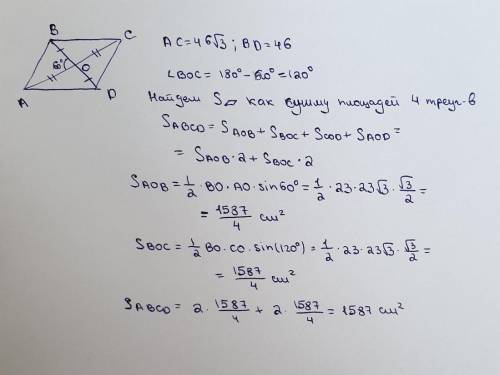 B
C
O
60°
A
D
AC=46√3 ; BD=46
∠BOC = 180° - 60° = 120°
Найдем S▱ как сумму площадей 4 треуг-в
S_ABCD = S_AOB + S_BOC + S_COD + S_AOD =
= S_AOB · 2 + S_BOC · 2
S_AOB = 1/2 · BO · AO · sin60° = 1/2 · 23 · 23√3 · √3/2 =
= 1587/4 см²
S_BOC = 1/2 BO · CO · sin(120°) = 1/2 · 23 · 23√3 · √3/2 =
= 1587/4 см²
S_ABCD = 2 · 1587/4 + 2 · 1587/4 = 1587 см²